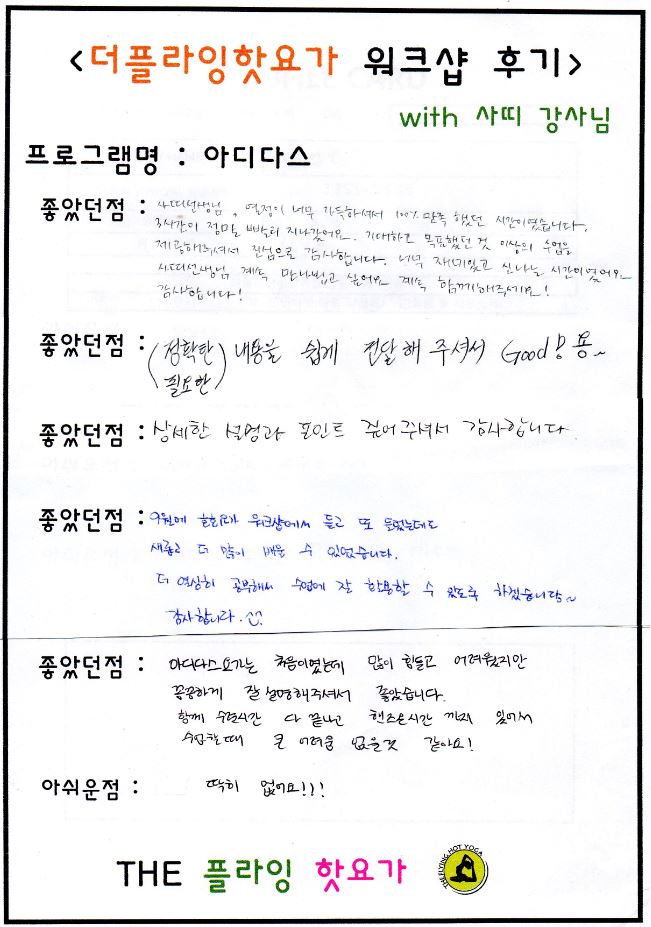 <더플라잉핫요가 워크샵 후기>
with 사띠 강사님
프로그램명 : 아디다스
좋았던점 : 사띠선생님, 열정이 너무 가득하셔서 100% 만족 했던 시간이었습니다.
3시간이 정말 빨리 지나갔어요. 기대하고 목표했던 것 이상의 수업을
제공해주셔서 진심으로 감사합니다. 너무 재미있고 신나는 시간이였어요
사띠선생님 계속 만나뵙고 싶어요 계속 함께해주세요!
감사합니다!
좋았던점 : (정확한 필요한) 내용을 쉽게 전달해 주셔서 Good!
좋았던점 : 상세한 설명과 포인트 집어주셔서 감사합니다
좋았던점 : 9월에 워크샵에서 듣고 또 들었는데도
새롭고 더 많이 배울 수 있었습니다.
더 열심히 공부해서 수업에 잘 활용할 수 있도록 하겠습니다~
감사합니다.
좋았던점 : 아디다스요가는 처음이였는데 많이 힘들고 어려웠지만
꼼꼼하게 잘 설명해주셔서 좋았습니다.
함께 수련시간 다 끝나고 핸즈온시간 까지 있어서
수업할때 큰 어려움 없을것 같아요!
아쉬운점 : 딱히 없어요!!!
THE 플라잉 핫요가
THE FLYING HOT YOGA